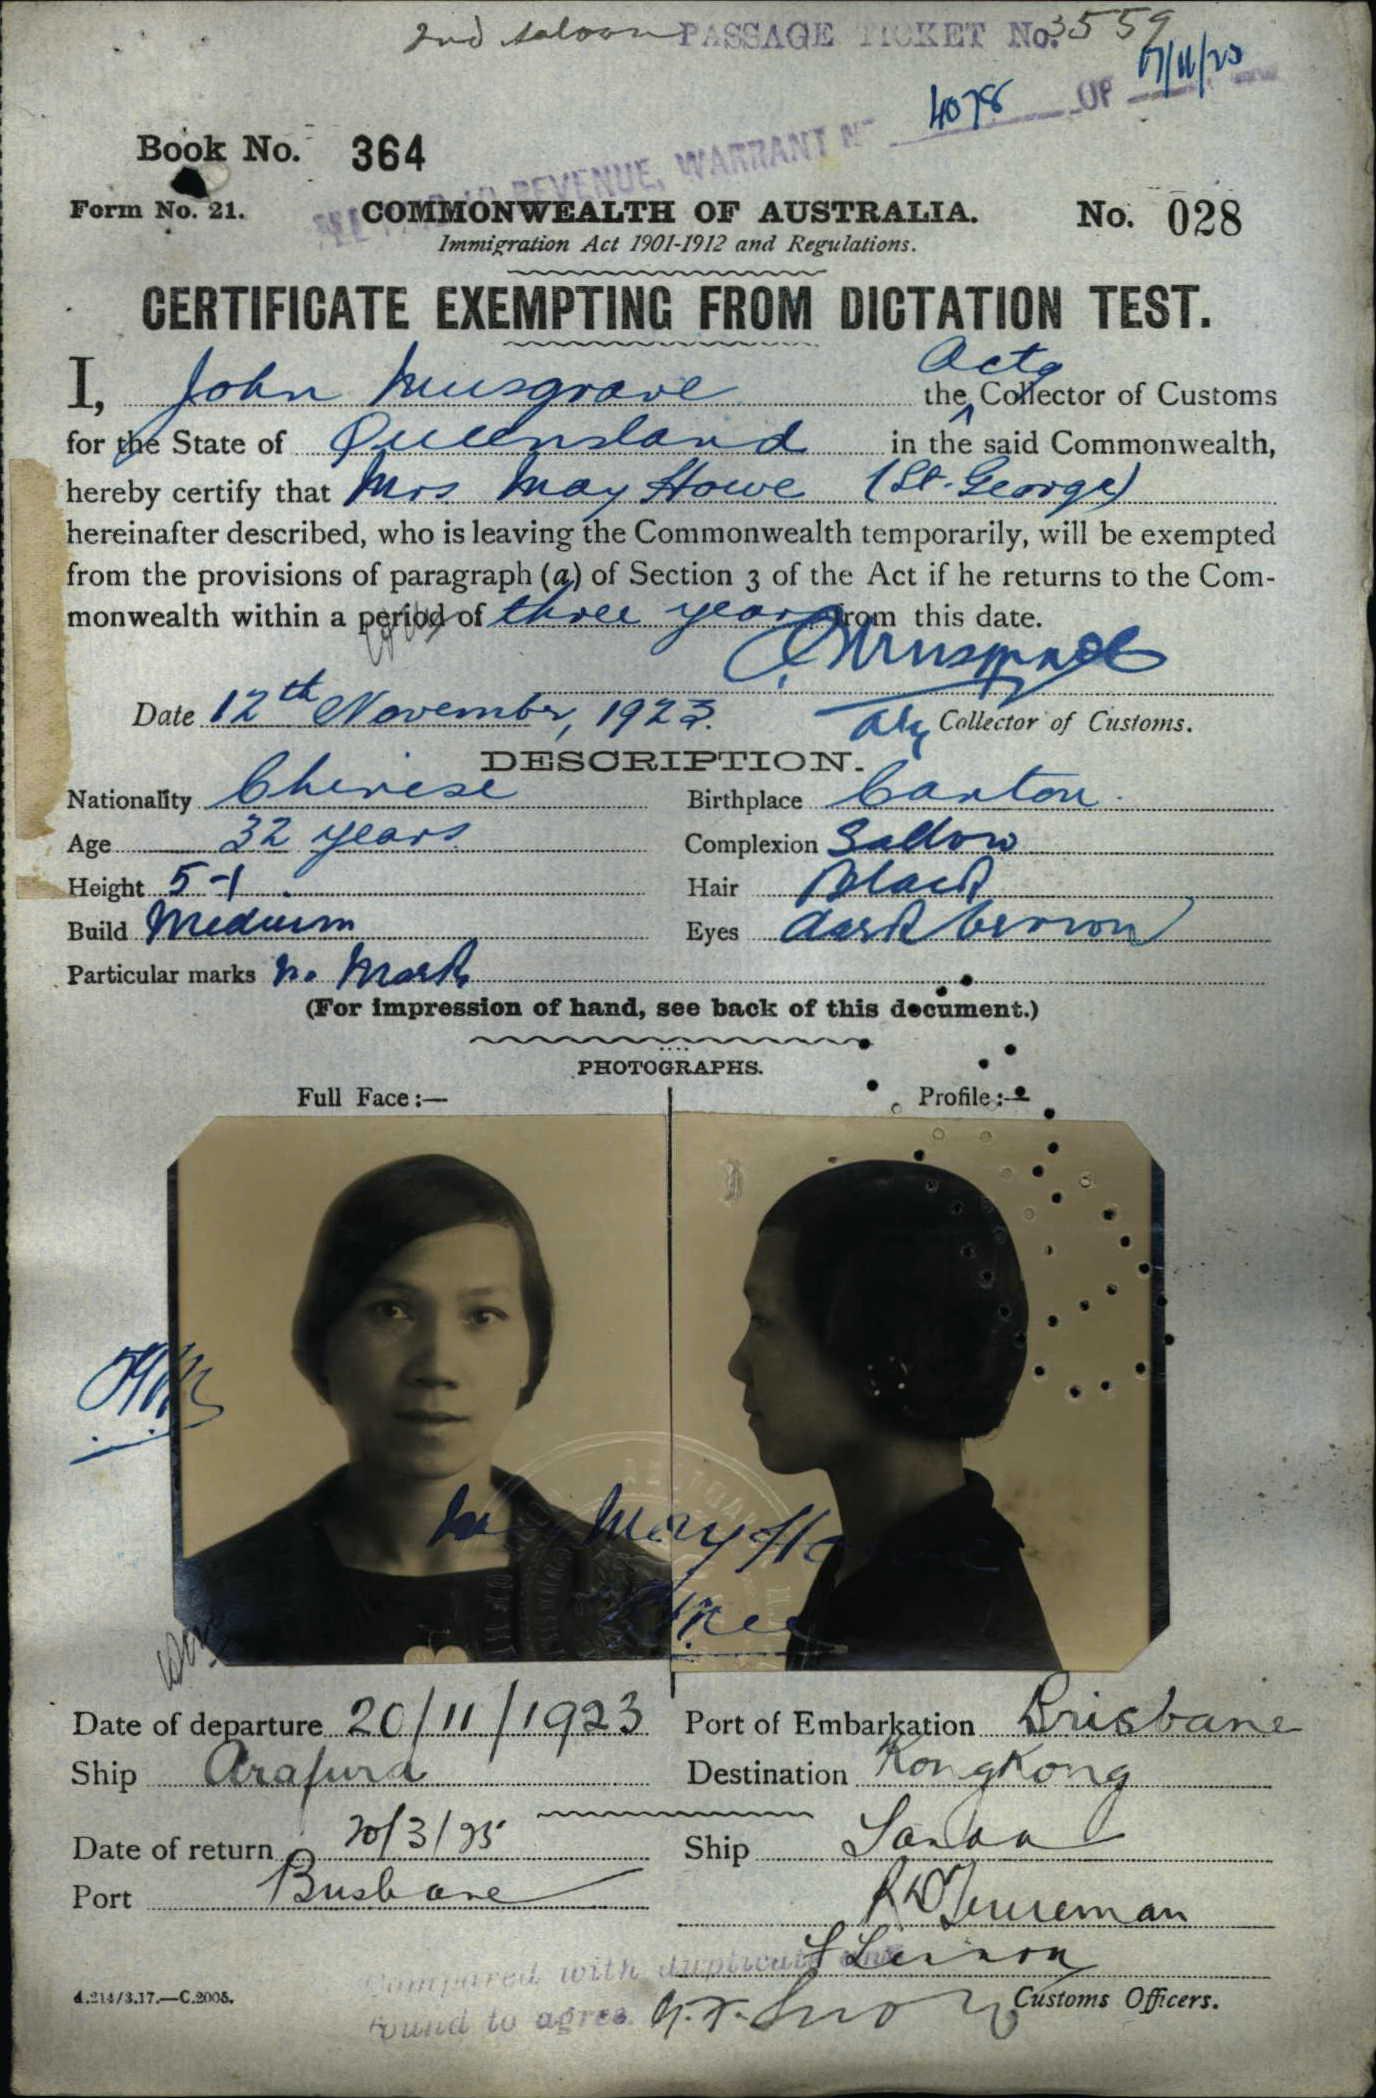 2nd Saloon PASSAGE TICKET No. 3559
4078 OF 17/11/23
REVENUE, WARRANT No
Book No. 364
Form No. 21. COMMONWEALTH OF AUSTRALIA. No. 028
Immigration Act 1901-1912 and Regulations.
CERTIFICATE EXEMPTING FROM DICTATION TEST.
I, John Musgrave the Actg Collector of Customs
for the State of Queensland in the said Commonwealth,
hereby certify that Mrs May Howe (St. George)
hereinafter described, who is leaving the Commonwealth temporarily, will be exempted
from the provisions of paragraph (a) of Section 3 of the Act if he returns to the Com-
monwealth within a period of three years from this date.
Musgrave
Date 12th November, 1923. Actg Collector of Customs.
DESCRIPTION.
Nationality Chinese Birthplace Canton.
Age 32 years Complexion Sallow
Height 5-1. Hair Black
Build Medium Eyes dark brown
Particular marks no mark
(For impression of hand, see back of this document.)
PHOTOGRAPHS.
Full Face:— Profile:—
May Howe
Date of departure 20/11/1923 Port of Embarkation Brisbane
Ship Arafura Destination Hongkong
Date of return 20/3/25 Ship
Port Brisbane
Compared with duplicate and
found to agree.
4.214/3.17.—C.2005. Customs Officers.